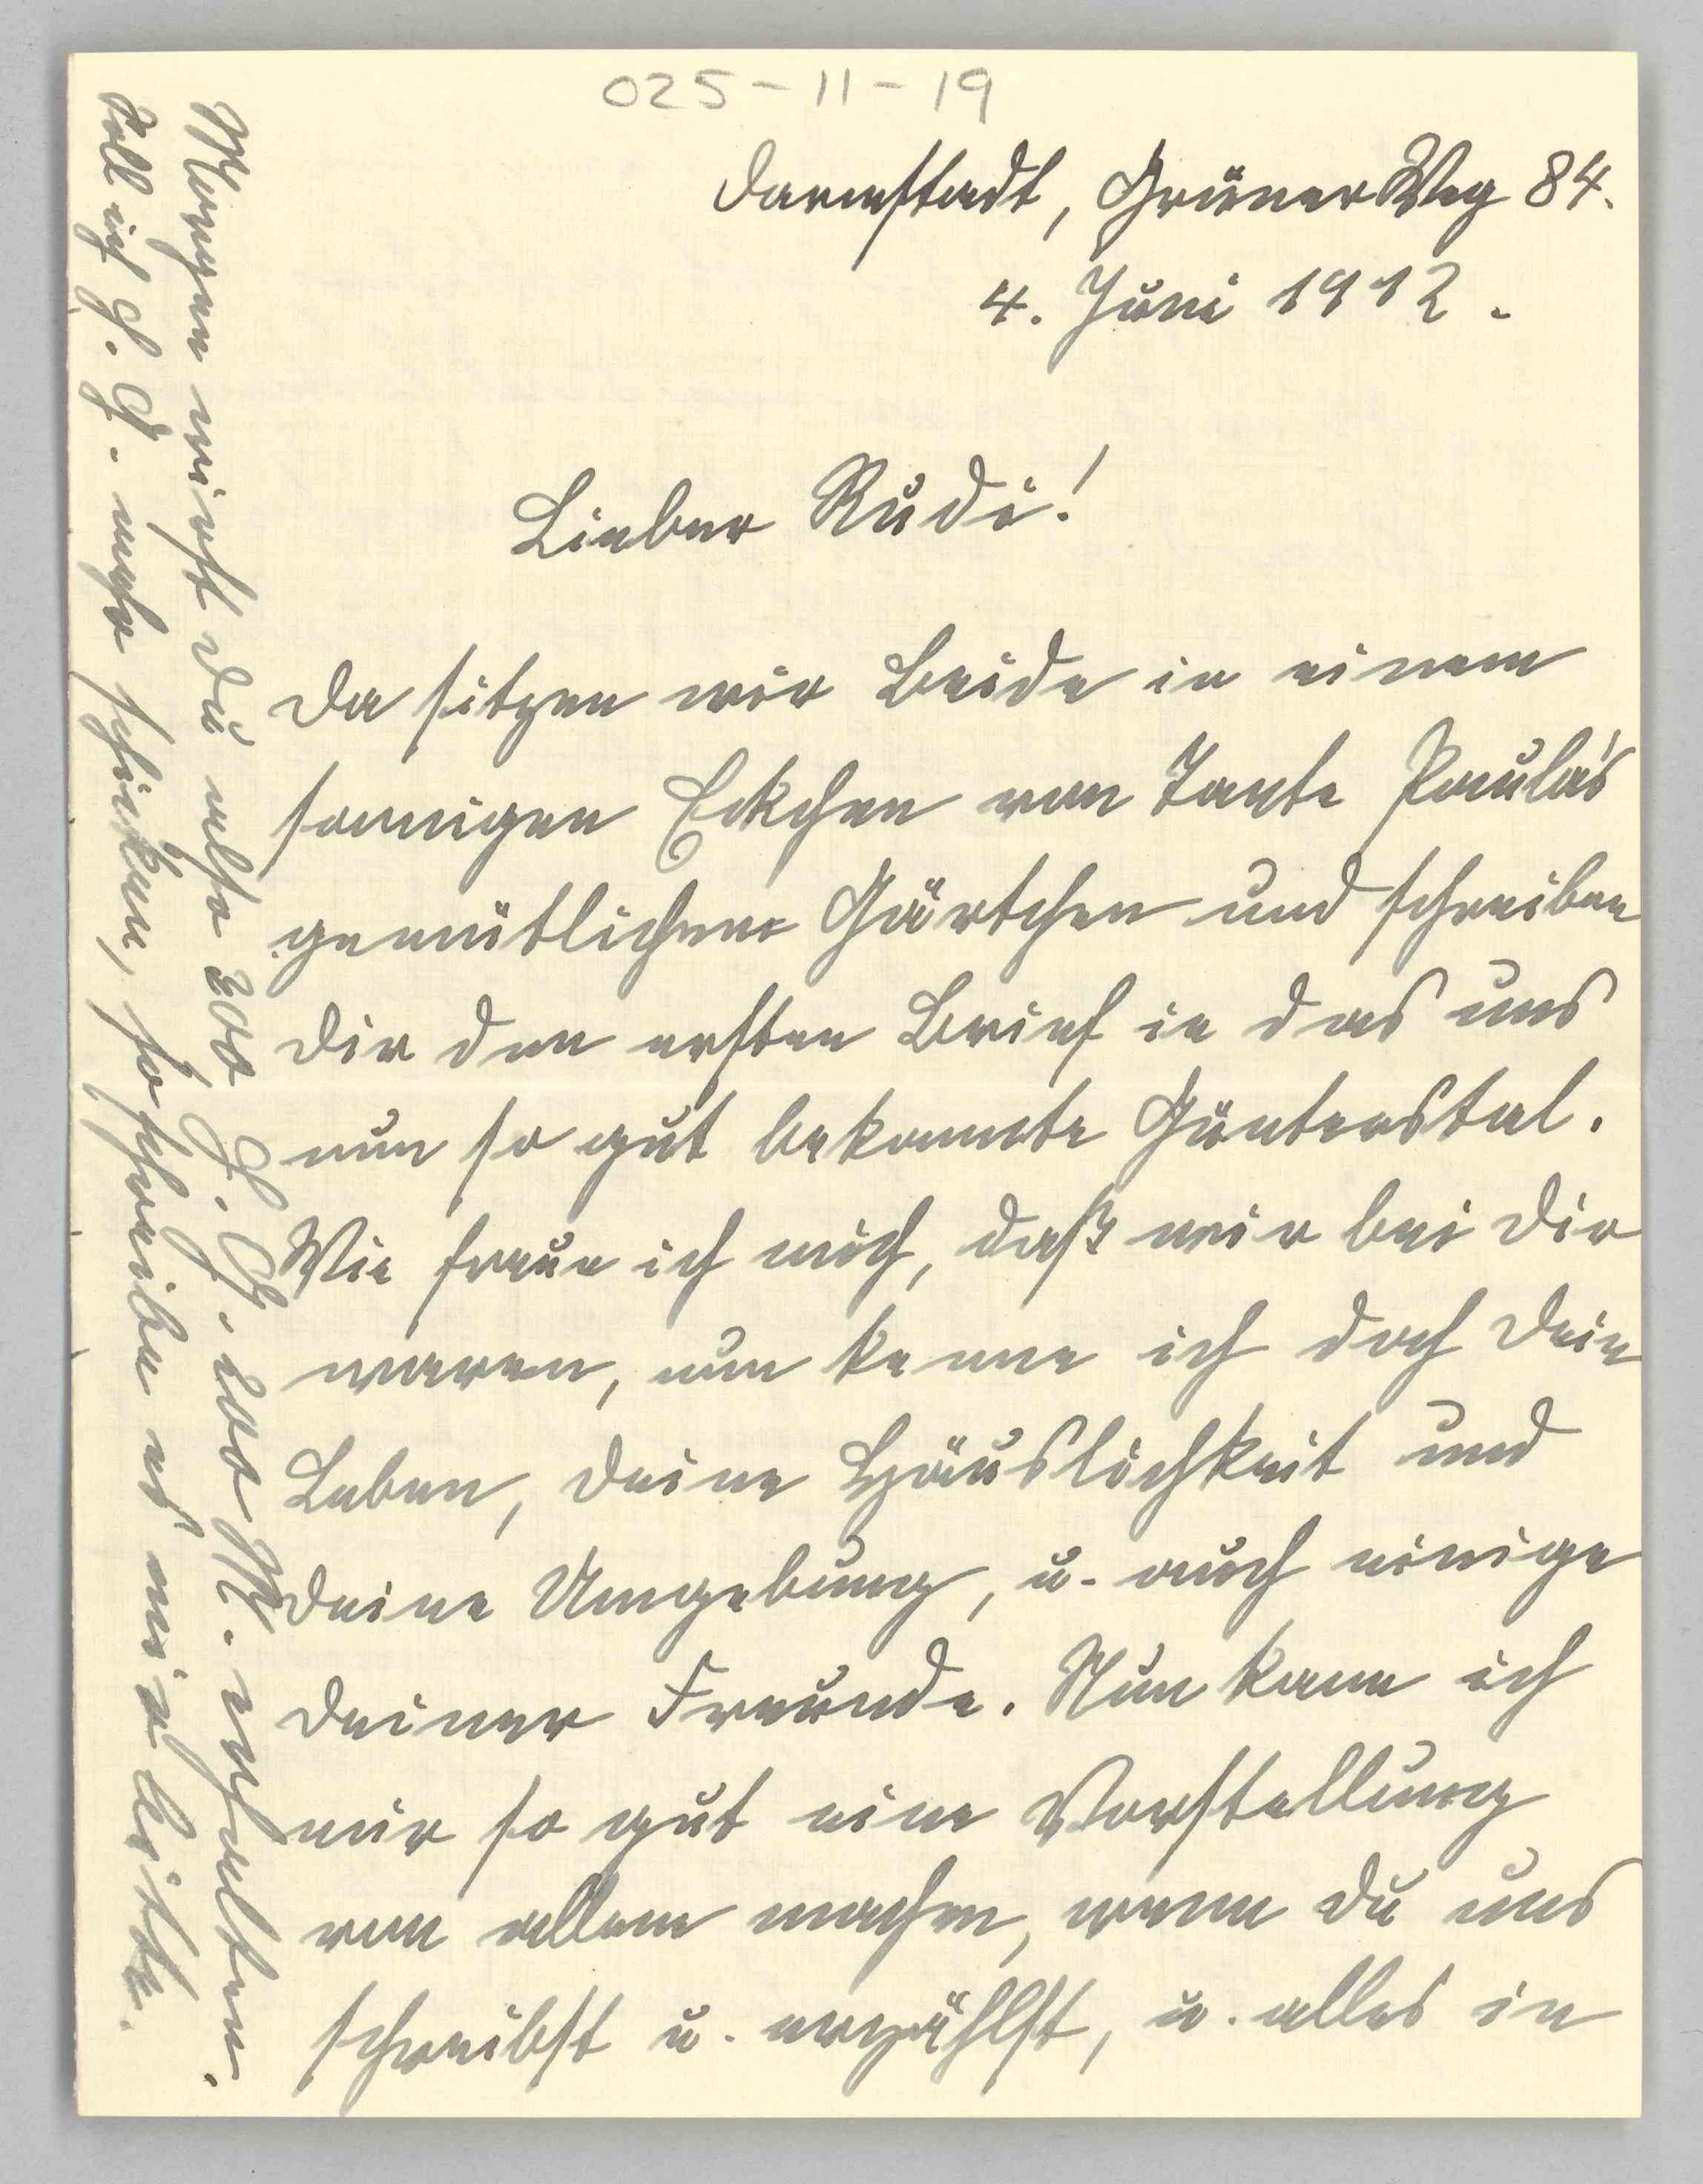 025-11-19
Darmstadt, Grüner Weg 84.
4. Juni 1912.
Lieber Rudi!
Da sitzen wir Beide in einem
sonnigen Eckchen von Tante Paula's
gemütlichem Gärtchen und schreiben
Dir den ersten Brief in das uns
nun so gut bekannte Günterstal.
Wie freue ich mich, daß wir bei Dir
waren, nun kenne ich doch Dein
Leben, Deine Häuslichkeit und
Deine Umgebung, u. auch einige
Deiner Freunde. Nun kann ich
mir so gut eine Vorstellung
von allem machen, wenn Du uns
schreibst u. erzählst, u. alles in
Morgen wirst Du also 200 M. erhalten.
Soll ich mehr schicken, so schreibe es mir bitte.